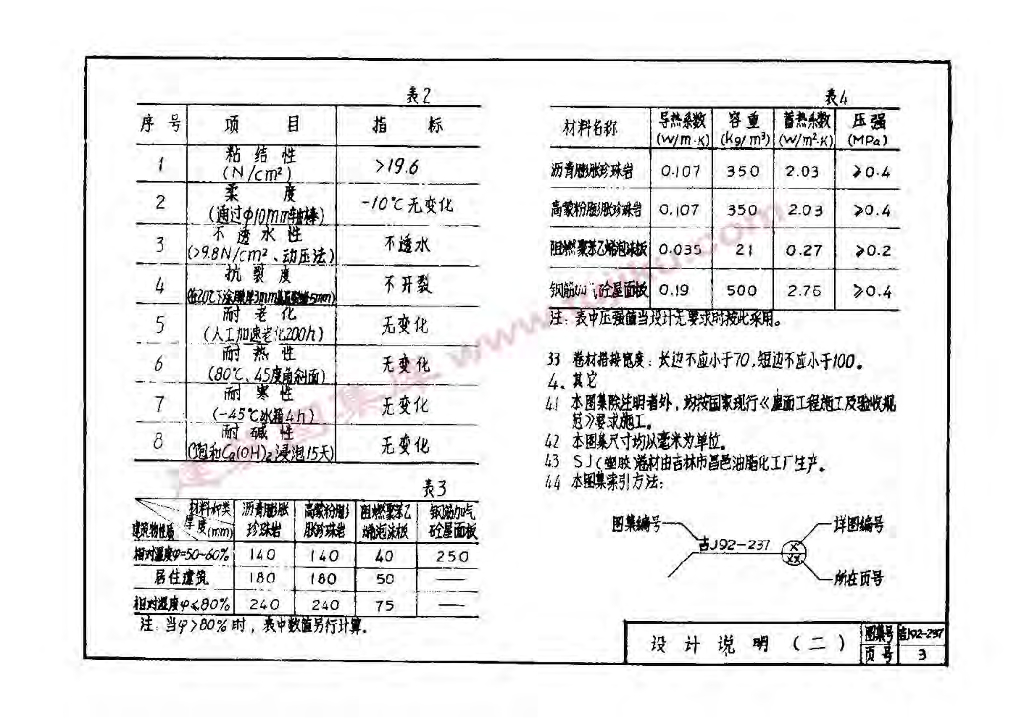 表2
序 号 项 目 指 标
1 粘 结 性 (N/cm²) >19.6
2 柔 度 (通过Φ10mm轴棒) -10℃无变化
3 不 透 水 性 (>9.8N/cm²、动压法) 不透水
4 抗 裂 度 不开裂
5 耐 老 化 (人工加速老化200h) 无变化
6 耐 热 性 (80℃、45度角斜面) 无变化
7 耐 寒 性 (-45℃冰箱4h) 无变化
8 耐 碱 性 (饱和Ca(OH)₂浸泡15天) 无变化
表3
材料种类 厚度(mm) 建筑物性质 沥青膨胀珍珠岩 高蒙粉膨胀珍珠岩 阻燃聚苯乙烯泡沫板 钢筋加气砼屋面板
相对湿度φ=50~60% 140 140 40 250
居住建筑 180 180 50 —
相对湿度φ≤80% 240 240 75 —
注: 当φ>80%时，表中数值另行计算。
表4
材料名称 导热系数(W/m·K) 容重(kg/m³) 蓄热系数(W/m²·K) 压强(MPa)
沥青膨胀珍珠岩 0.107 350 2.03 ≥0.4
高蒙粉膨胀珍珠岩 0.107 350 2.03 ≥0.4
阻燃聚苯乙烯泡沫板 0.035 21 0.27 ≥0.2
钢筋加气砼屋面板 0.19 500 2.76 ≥0.4
注: 表中压强值当设计无要求时按此采用。
33 卷材搭接宽度: 长边不应小于70,短边不应小于100。
4、其它
4.1 本图集除注明者外，均按国家现行《屋面工程施工及验收规
范》要求施工。
42 本图集尺寸均以毫米为单位。
43 SJC塑胶卷材由吉林市昌邑油脂化工厂生产。
44 本图集索引方法:
图集编号
吉J92-237
X
XX
详图编号
所在页号
设 计 说 明 (二)
图集号 吉J92-237
页 号 3